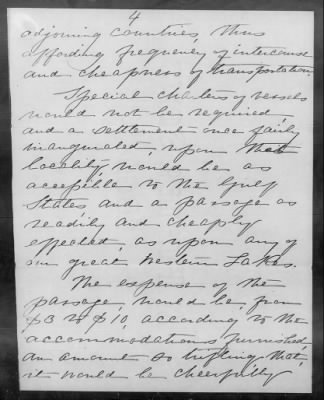 4
adjoining countries, thus
affording frequency of intercourse
and cheapness of transportation.
Special charters of vessels
would not be required
and a settlement once fairly
inaugurated, upon that
locality would be as
accessible to the Gulf
States and a passage as
readily and cheaply
effected, as upon any of
our great Western Lakes.
The expense of the
passage, would be, from
$3 to $10, according to the
accommodations furnished
an amount so trifling that,
it would be cheerfully